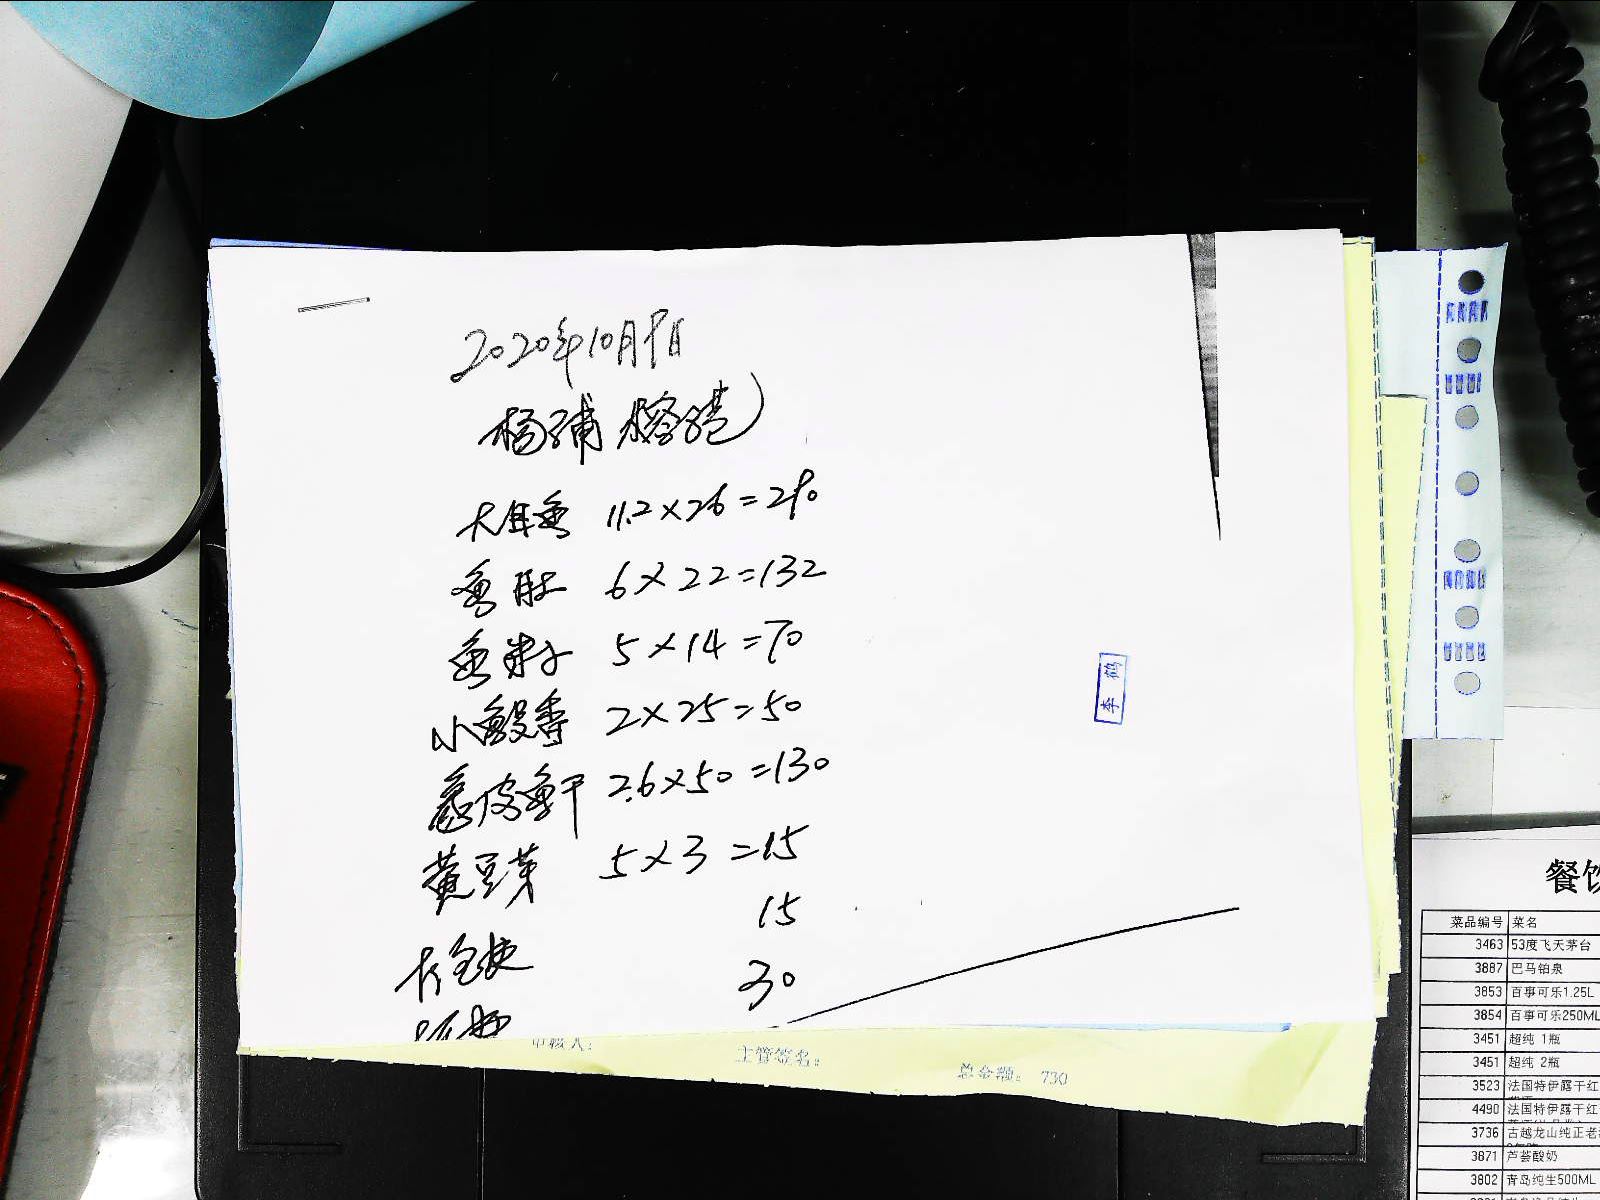 2020年10月9日
杨浦
大耳鱼 11.2×26=290
鱼肚 6×22=132
鱼籽 5×14=70
小 2×25=50
皮鱼干 2.6×50=130
黄豆芽 5×3=15
15
30
李鹤
主管签名：
总金额： 730
餐饮
菜品编号 菜名
3463 53度飞天茅台
3887 巴马铂泉
3853 百事可乐1.25L
3854 百事可乐250ML
3451 超纯 1瓶
3451 超纯 2瓶
3523 法国特伊露干红
4490 法国特伊露干红
3736 古越龙山纯正老
3871 芦荟酸奶
3802 青岛纯生500ML